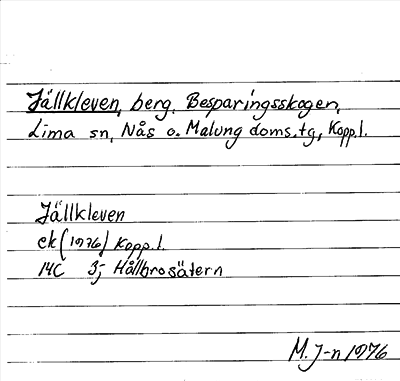 Jällkleven, berg. Besparingsskogen,
Lima sn, Nås o. Malung doms.tg, Kopp.l.
Jällkleven
ek (1976) Kopp.l.
14C 3j Hållbrosätern
M. J-n 1976